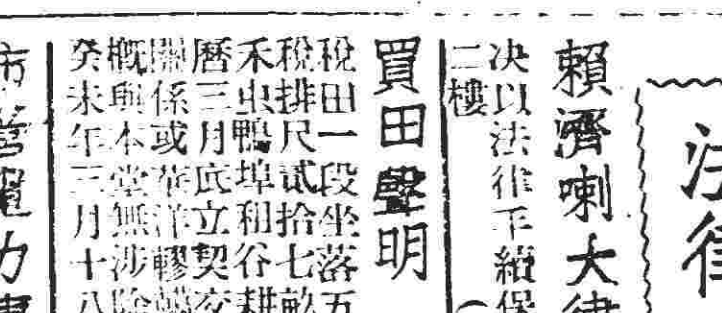 法律
賴濟喇大律
决以法律手續保
二樓
買田聲明
稅田一段坐落五
稅排尺貳拾七畝
禾虫鴨埠租谷耕
曆三月底立契交
關係或華洋轇轕
概與本堂無涉除
癸未年三月十八
市營電力